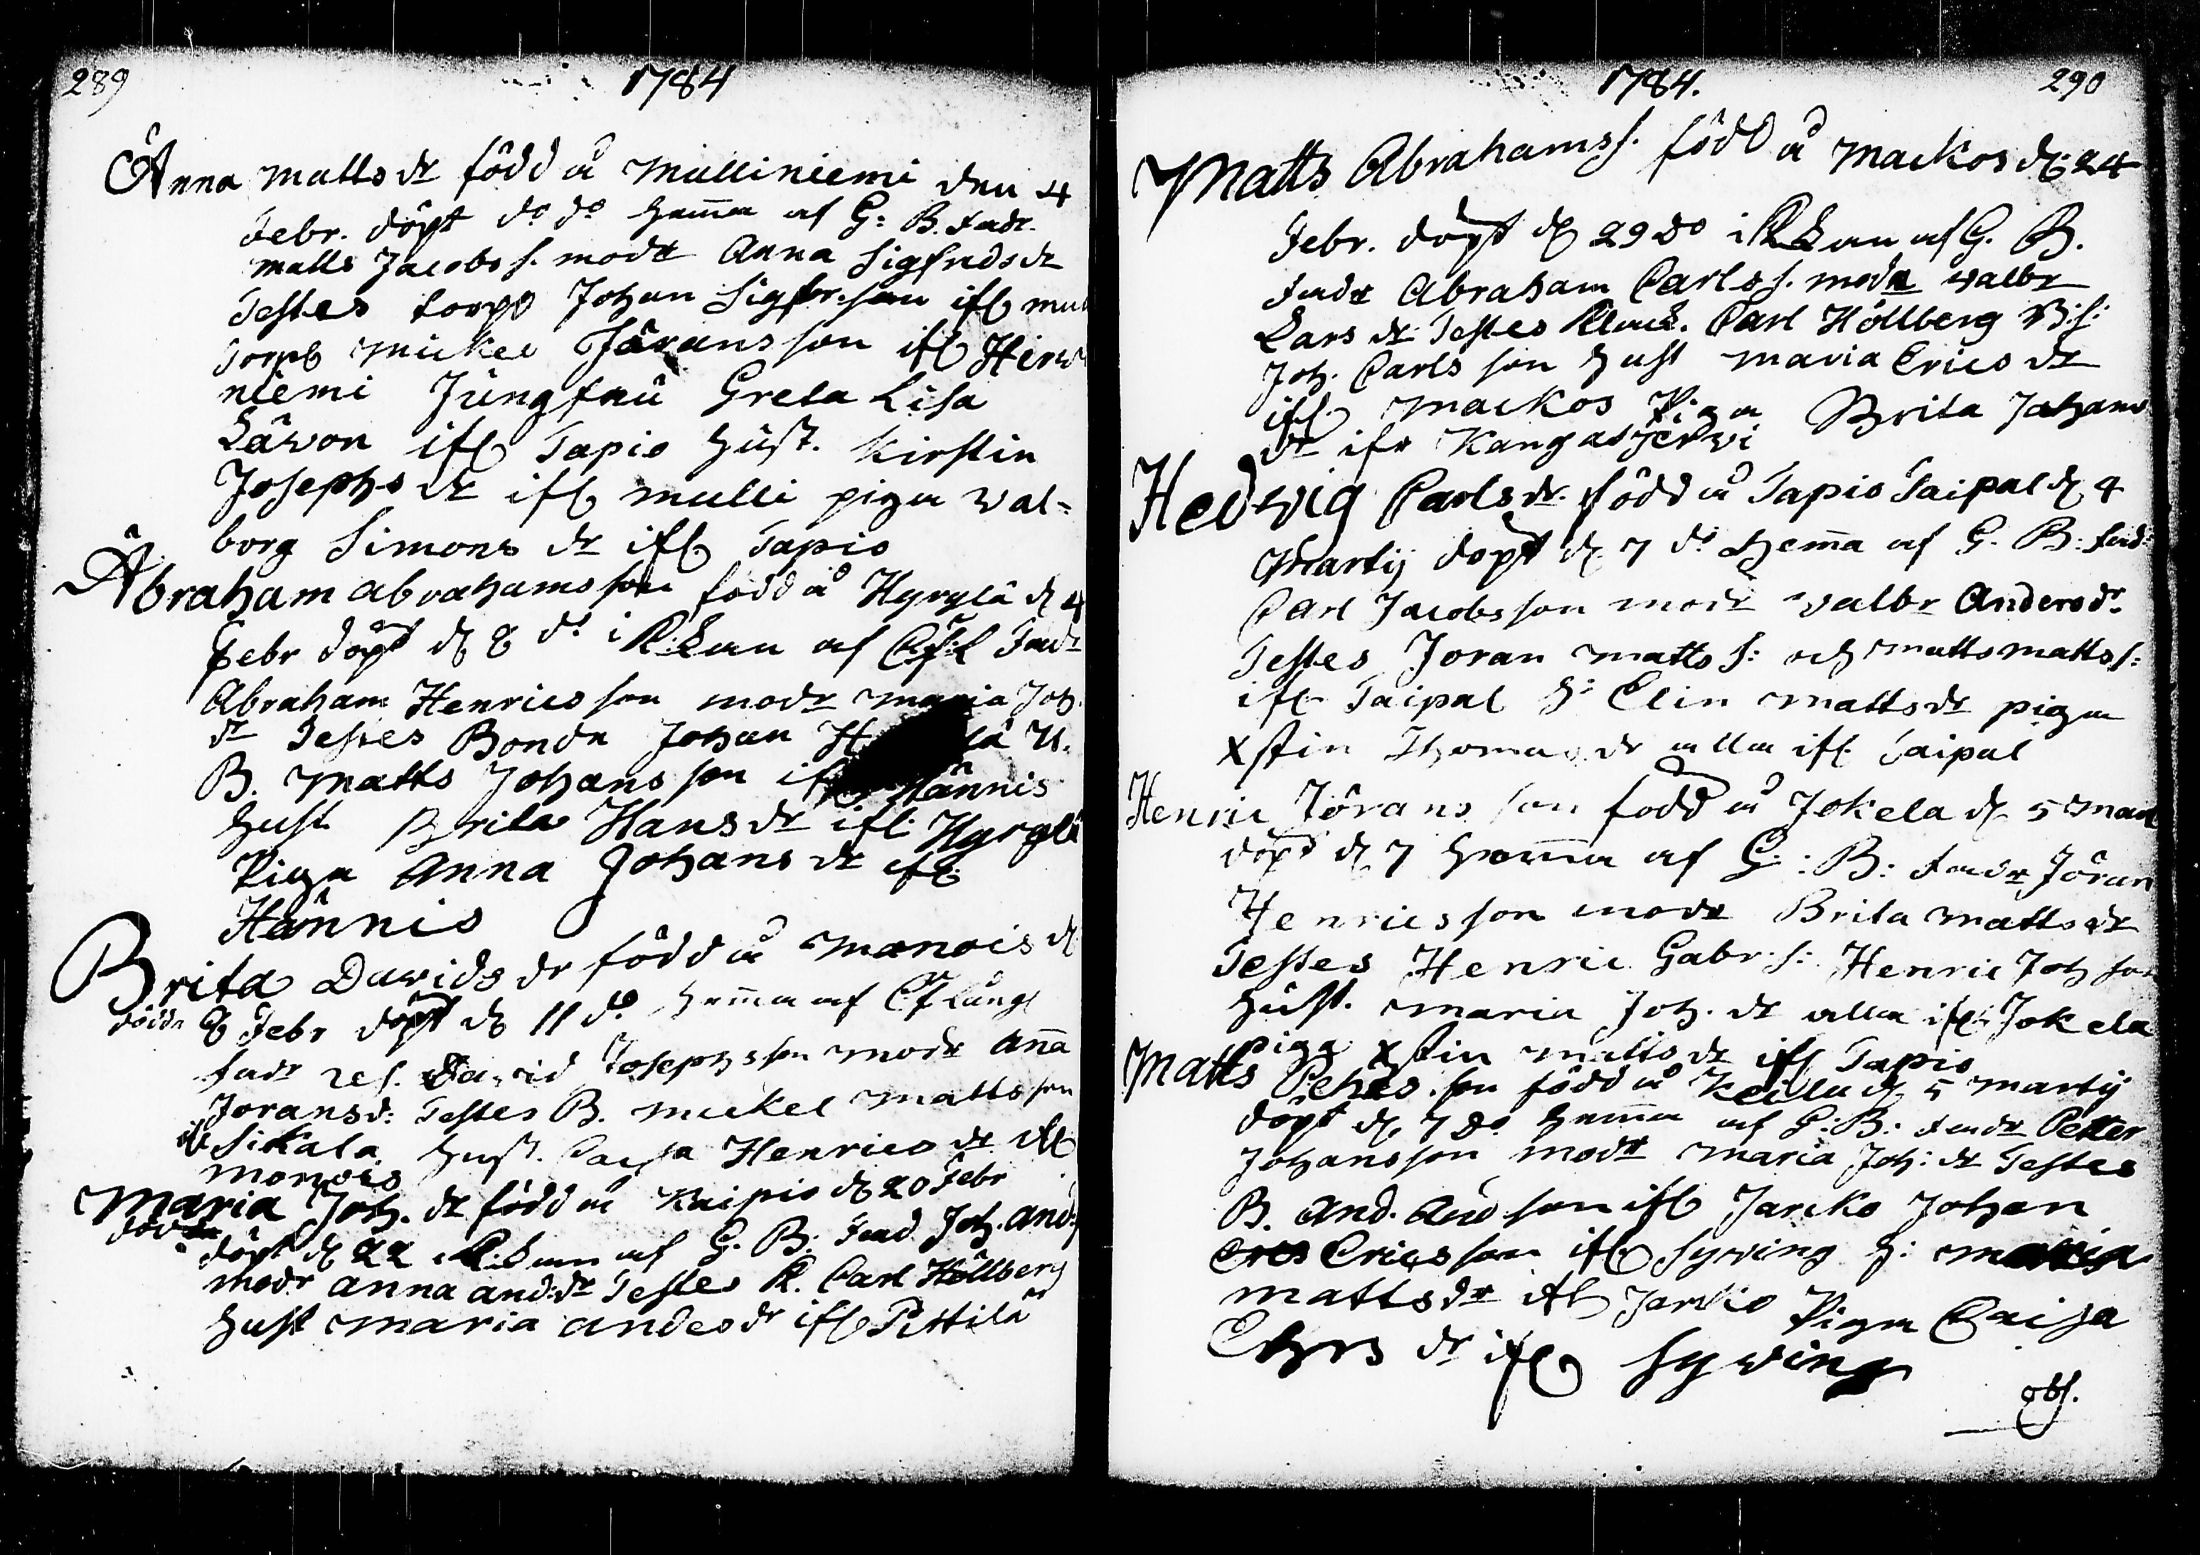 289
1784
Anna Matts dr född å Mulliniemi den 4
Febr. döpt do do hemma af G: B. Fadr.
Matts Jacobs s. modr Anna Sigfrids dr
Testes torp: Johan Sigfr. son ifr Mul
Torp: Mickel Jöransson ifr Hirw
niemi Jungfru Greta Lisa
Läwon ifr Tapio hust. Kirstin
Josephs dr ifr Mulli piga Wal=
borg Simons dr ifr Tapio
Abraham Abrahamsson född å Hyrylä d 4
Febr döpt d 8 do i Kkan af Fadr
Abraham Henricsson modr Maria Joh.
dr Testes Bonde Johan H lä U.
B. Matts Johansson ifr Hännis
hust Brita Hans dr ifr Hyrylä
Piga Anna Johans dr ifr
Hännis
Brita Davids dr född å Manois d
döde 8 Febr döpt d 11 do hemma af
Fadr David Josephsson modr Anna
Jorans d: Testes B. Mickel Mattsson
ifr Sikala hust. Caisa Henrics dr ifr
Monois
Maria Joh. dr född å Kaipio d 20 Febr
död döpt d 22 i Kkan af G. B: Fad. Joh. And:
modr Anna And: dr Testes K. Carl Höllberg
hust Maria Anders dr ifr Pittilä
1784.
290
Matts Abrahamss. född å Mackos d. 24
Febr. döpt d 29 do i Kkan af G. B.
Fadr Abraham Carls s. modr Walbr
Lars dr. Testes Klock. Carl Höllberg B: s:
Joh. Carls son hust Maria Erics dr
ifr Mackos Piga Brita Johans
dr ifr Kangasjerwi
Hedwig Carls dr. född å Tapio Taipal d 4
Martij döpt d 7 do hemma af G. B: Fad:
Carl Jacobsson modr Walbr Anders dr.
Testes Joran Matts s: och Matts Matts s:
ifr Taipal H: Elin Matts dr piga
Xstin Thomas dr alla ifr Taipal
Henric Jörans son född å Jokela d 5 Mart
döpt d 7 hemma af G: B: Fadr Jöran
Henricsson modr Brita Matts dr
Testes Henric Gabr: s: Henric Joh son
hust. Maria Joh. dr alla ifr Jokela
piga Xstin Matts dr ifr Tapio
Matts Petters son född å Keilu d 5 Martij
döpt d 7 do hemma af G: B: Fadr Petter
Johansson modr Maria Joh: dr Testes
B. And. And son ifr Jarcko Johan
Ericsson ifr Syving h: Maria
Matts dr ifr Jarkio Piga Caisa
dr ifr Syving
obs.